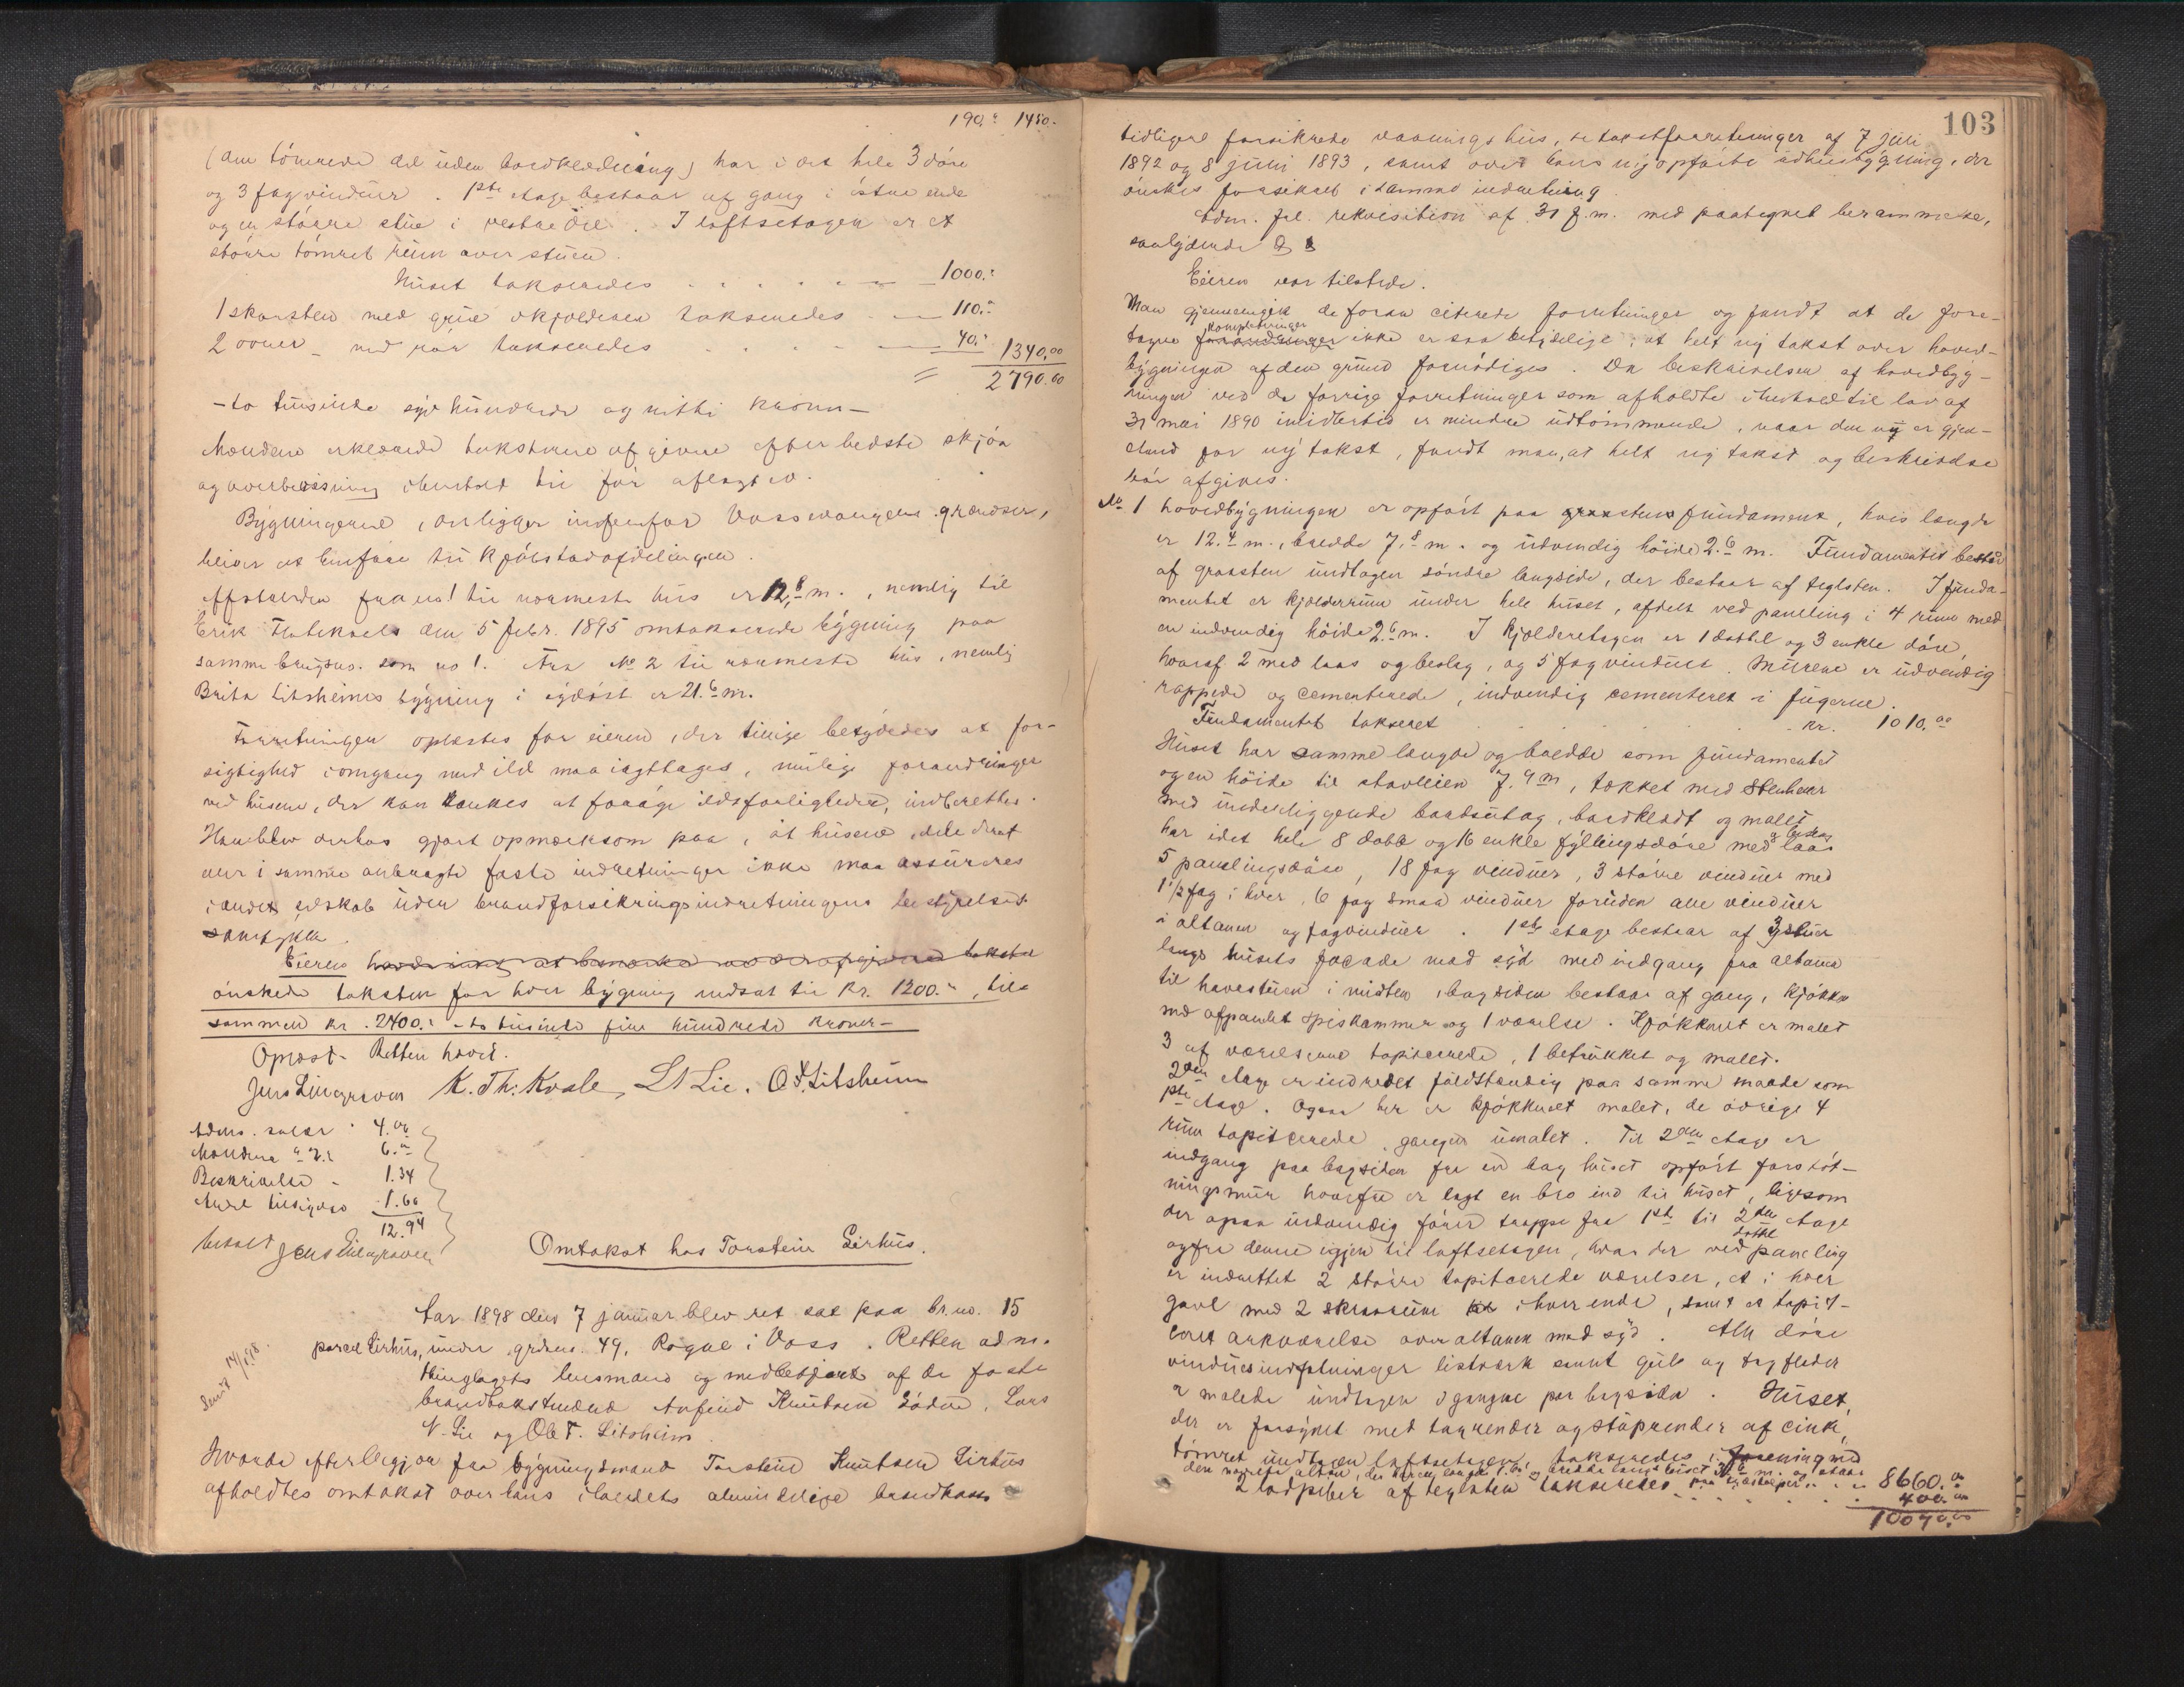 190." 1450.
(den tömrede del uden bordklædning) har i det hele 3 döre
og 3 fag vinduer. 1ste etage bestaar af gang i östre ende
og en större stue i vestre del. I loftsetagen er et
större tömret rum over stuen.
Huset takseredes 1000."
1 skorsten med grue i kjelderen takseredes 110."
2 ovner med rör takseredes 40." 1340.00
= 2790.00
- to tusinde syv hundrede og nitti kroner -
Mændene erklærede taksterne afgivne efter bedste skjön
og overbevisning i henhold til för aflagt ed.
Bygningerne, der ligger indenfor Vossevangens grændser,
bliver at henföre til kjöbstadafdelingen.
Afstanden fra no 1 til nærmeste hus er 12,8 m., nemlig til
Erik Flatekvals den 5 febr. 1895 omtakserede bygning paa
samme brugsno. som no 1. Fra No 2 til nærmeste hus, nemlig
Brita Litsheims bygning i sydöst er 21.6 m.
Forretningen oplæstes for eieren, der tillige betydedes at for-
sigtighed i omgang med ild maa iagttages, mulige forandringer
ved husene, der kan tænkes at foröge ildsfarligheden, indberettes.
Han blev derhos gjort opmærksom paa, at husene, dele deraf
eller i samme anbragte faste indretninger ikke maa assureres
i andet selskab uden brandforsikringsindretningens bestyrelses
samtykke.
Eieren havde intet at bemærke ved de afgivne takster
önskede taksten for hver bygning nedsat til kr. 1200.", til-
sammen kr. 2400." - to tusinde fire hundrede kroner -
Oplæst. Retten hævet.
Jens Lilegraven K. Th. Kvale, L N Lie. O. T. Litsheim
Adms. salær 4.00
Mændene a 2." 6."
Beskrivelse - 1.34
1.60
12.94
betalt Jens Lilegraven
Omtakst hos Torstein Lirhus.
Sendt 14/1 98.
Aar 1898 den 7 januar blev ret sat paa br.no. 15
parcel Lirhus, under grdsno. 49, Rogne i Voss. Retten adm.
thinglagets lensmand og medbetjent af de faste
brandtakstmænd Anfind Knutsen Lödve, Lars
N. Lie og Ole T. Litsheim.
Hvorda efter begjær fra bygningsmand Torstein Knutsen Lirhus
afholdtes omtakst over hans i landets almindelige brandkasse
103
tidligere forsikrede vaaningshus, se takstforretninger af 7 juli
1892 og 8 juni 1893, samt over hans nyopförte udhusbygning, der
önskes forsikret i samme indretning.
Adm. frl. rekvisition af 31 f.m. med paategnet berammelse,
saalydende
Eieren var tilstede.
Man gjennemgik de foran citerede forretninger og fandt at de fore-
kompletteringer
tagne forandringer ikke er saa betydelige, at helt ny takst over hoved-
bygningen af den grund fornödiges. Da beskrivelsen af hovedbyg-
ningen ved de forrige forretninger som afholdte i henhold til lov af
31 mai 1890 imidlertid er mindre udtömmende, naar den nu er gjen-
stand for ny takst, fandt man, at helt ny takst og beskrivelse
bör afgives.
No 1 hovedbygningen er opfört paa graastens fundament, hvis længde
er 12.4 m., bredde 7.8 m. og udvendig höide 2.6 m. Fundamentet bestaar
af graasten undtagen söndre langside, der bestaar af teglsten. I funda-
mentet er kjelderrum under hele huset, afdelt ved paneling i 4 rum med
en indvendig höide 2.6 m. I kjelderetagen er 1 dobbl og 3 enkle döre,
hvoraf 2 med laas og beslag, og 5 fag vinduer. Murene er udvendig
rappede og cementerede, indvendig cementeret i fugerne.
Fundamentet takseret kr. 1010.00
Huset har samme længde og bredde som fundamentet
og en höide til stavleien 7.9 m, tækket med Stenheller
med underliggende bordsutag, bordklædt og malet
har idet hele 8 dobb og 16 enkle fyllingsdöre med laas
og beslag
5 panelingsdöre, 18 fag vinduer, 3 större vinduer med
1 1/2 fag i hver, 6 fag smaa vinduer foruden alle vinduer
i altanen og fagvinduer. 1ste etage bestaar af 3 stuer
langs husets façade mod syd med indgang fra altanen
til havestuen i midten, bagsiden bestaar af gang, kjökken
med afpanelet spiskammer og 1 værelse. Kjökkenet er malet
3 af værelserne tapitserede, 1 betrukket og malet.
2den etage er indredet fuldstændig paa samme maade som
1ste etage. Ogsaa her er kjökkenet malet, de övrige 4
rum tapitserede, gangen umalet. Til 2den etage er
indgang paa bagsiden fra en bag huset opfört forstöt-
ningsmur hvorfra er lagt en bro ind til huset, ligesom
der ogsaa indvendig förer trappe fra 1ste til 2den etage
og fra denne igjen til loftsetagen, hvor der ved paneling
er indrettet 2 större tapitserede værelser, et i hver
gavl med 2 skraarum i hver ende, samt et tapit-
seret arkværelse over altanen mod syd. Alle döre
vinduesindfatninger listværk samt gulv og tagflader
er malede undtagen i gangene paa bagsiden. Huset,
der er forsynet med tagrender og stöprender af cink,
tömret undtagen loftsetagen takseredes i forening med
den nævnte altan, 8660.00
2 ildpiber af teglsten takseredes 400.00
10070.00